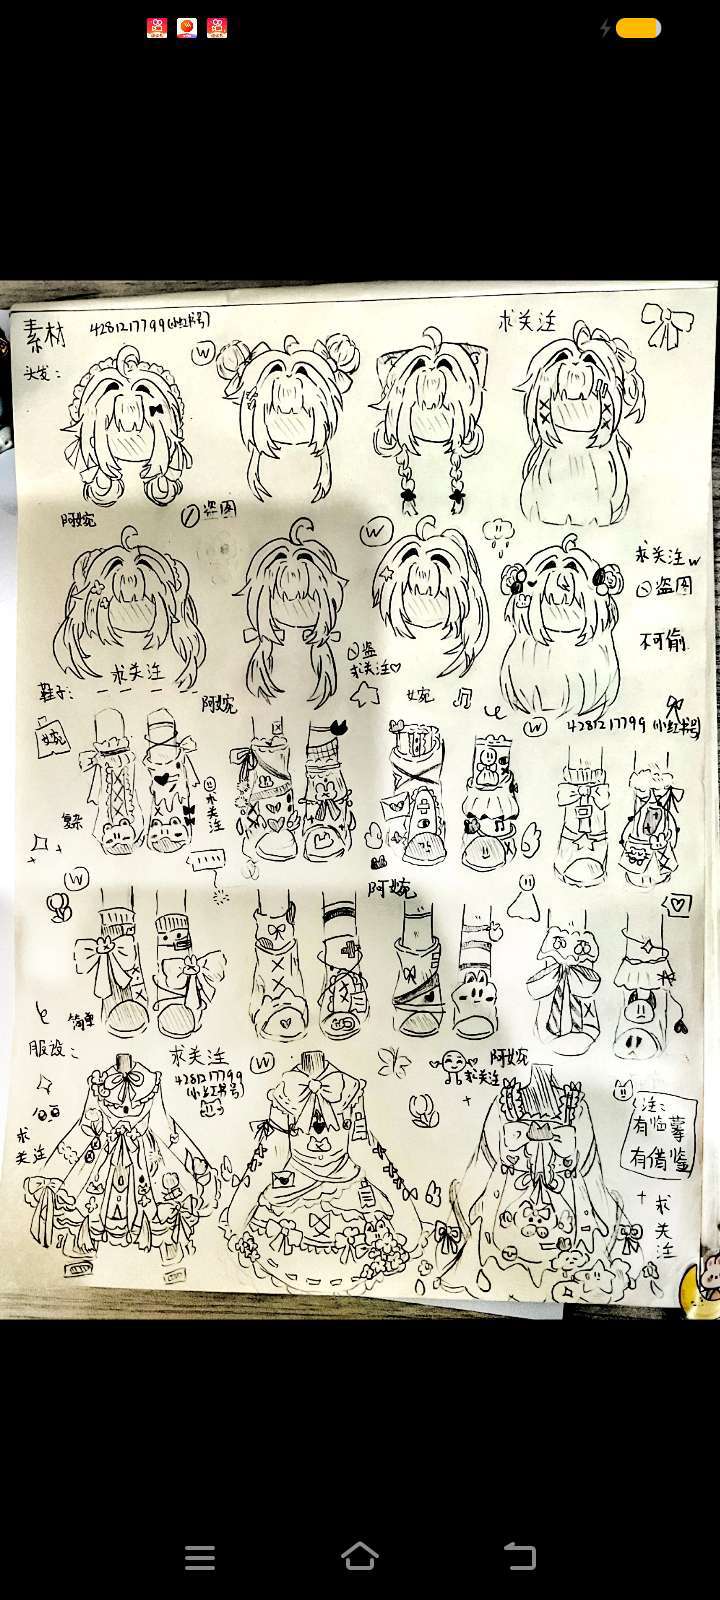 素材 4281217799(小红书号) 求关注
头发：
W
阿婉
盗图
W
求关注w
盗图
不可偷
求关注
盗
求关注♡
鞋子：
阿婉
婉
W
4281217799(小红书号)
婉
求关注
复杂
W
阿婉
简单
服设：
求关注
4281217799
(小红书号)
W
阿婉
求关注
注：
有临摹
有借鉴
求关注
求关注